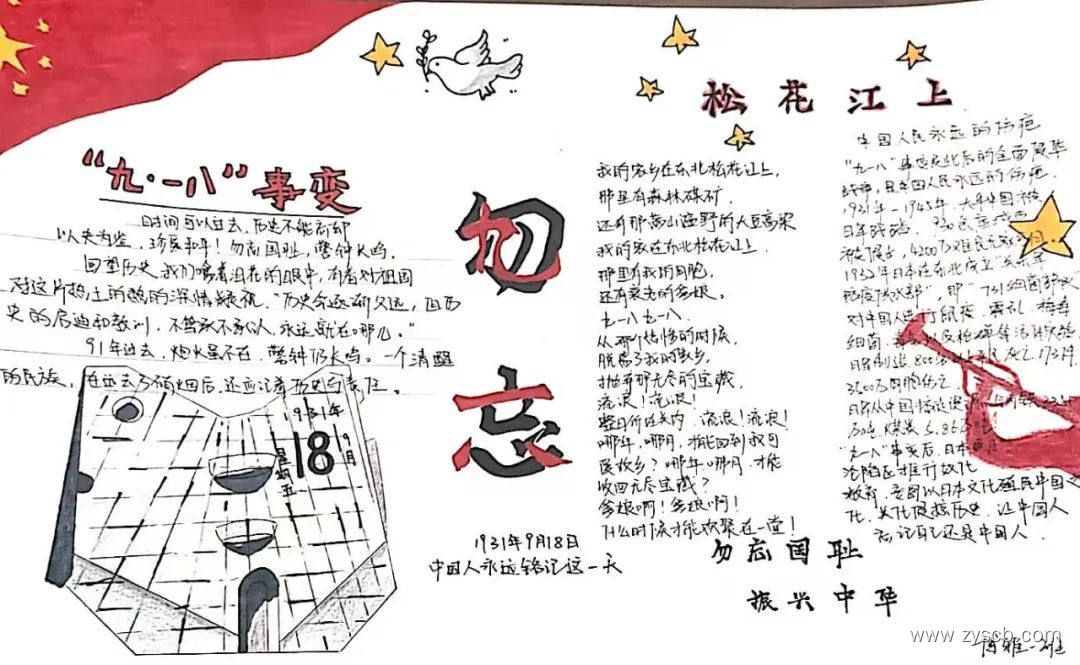 "九·一八"事变
时间可以过去,历史不能忘却
以史为鉴,珍爱和平!勿忘国耻,警钟长鸣。
回望历史,我们噙着泪花的眼中,有着对祖国
对这片热土的深情凝视。"历史会逐渐久远,但历
史的启迪和教训,不管承不承认,永远就在哪儿。"
91年过去,炮火虽不在,警钟仍长鸣。一个清醒
的民族,在远去了硝烟后,还要记着历史与责任。
1931年
9月
18
星期五
勿
忘
1931年9月18日
中国人永远铭记这一天
松花江上
我的家乡在东北松花江上,
那里有森林煤矿
还有那满山遍野的大豆高粱
我的家在东北松花江上.
那里有我的同胞,
还有衰老的爹娘。
九一八 九一八.
从那个悲惨的时候
脱离了我的家乡,
抛弃那无尽的宝藏
流浪!流浪!
整日价在关内 流浪!流浪!
哪年,哪月,才能回到我可
爱故乡?哪年 哪月 才能
收回无尽宝藏?
爹娘啊!爹娘啊!
什么时候才能欢聚在一堂!
中国人民永远的伤疤
"九一八"事变及此后的全面侵华
战争,是中国人民永远的伤疤.
1931年-1945年,大半中国被
日军践踏,930余座城市
被侵占,4200万难民无家可归.
1932年日本在东北成立
即"731细菌部队"
对中国人进行鼠疫、霍乱、梅毒
细菌
3500万同胞伤亡
日军从中国掠夺
"九一八"事变后,日本
沦陷区推行奴化
教育,妄图以日本文化殖民中国文
化,美化侵略历史,让中国人
忘记自己还是中国人.
勿忘国耻
振兴中华
www.zyscb.com